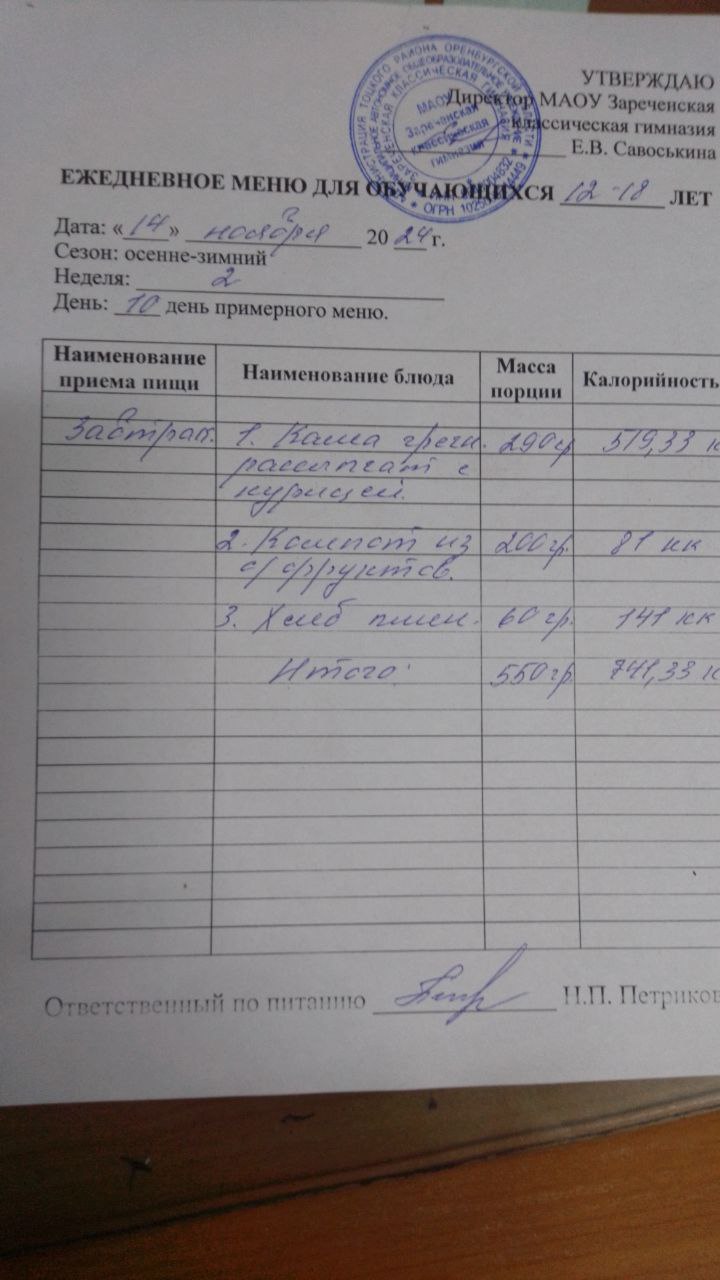 УТВЕРЖДАЮ
Директор МАОУ Зареченская
классическая гимназия
Е.В. Савоськина
МАОУ
Зареченская
классическая
гимназия
ЕЖЕДНЕВНОЕ МЕНЮ ДЛЯ ОБУЧАЮЩИХСЯ 12-18 ЛЕТ
Дата: «14» ноября 2024 г.
Сезон: осенне-зимний
Неделя: 2
День: 10 день примерного меню.
Наименование приема пищи Наименование блюда Масса порции Калорийность
Завтрак. 1. Каша гречн. 290гр 519,33 к
рассыпчат с
курицей.
2. Компот из 200гр. 81 кк
с/фруктов.
3. Хлеб пшен. 60 гр. 141 кк
Итого: 550гр 741,33 к
Ответственный по питанию Н.П. Петриков